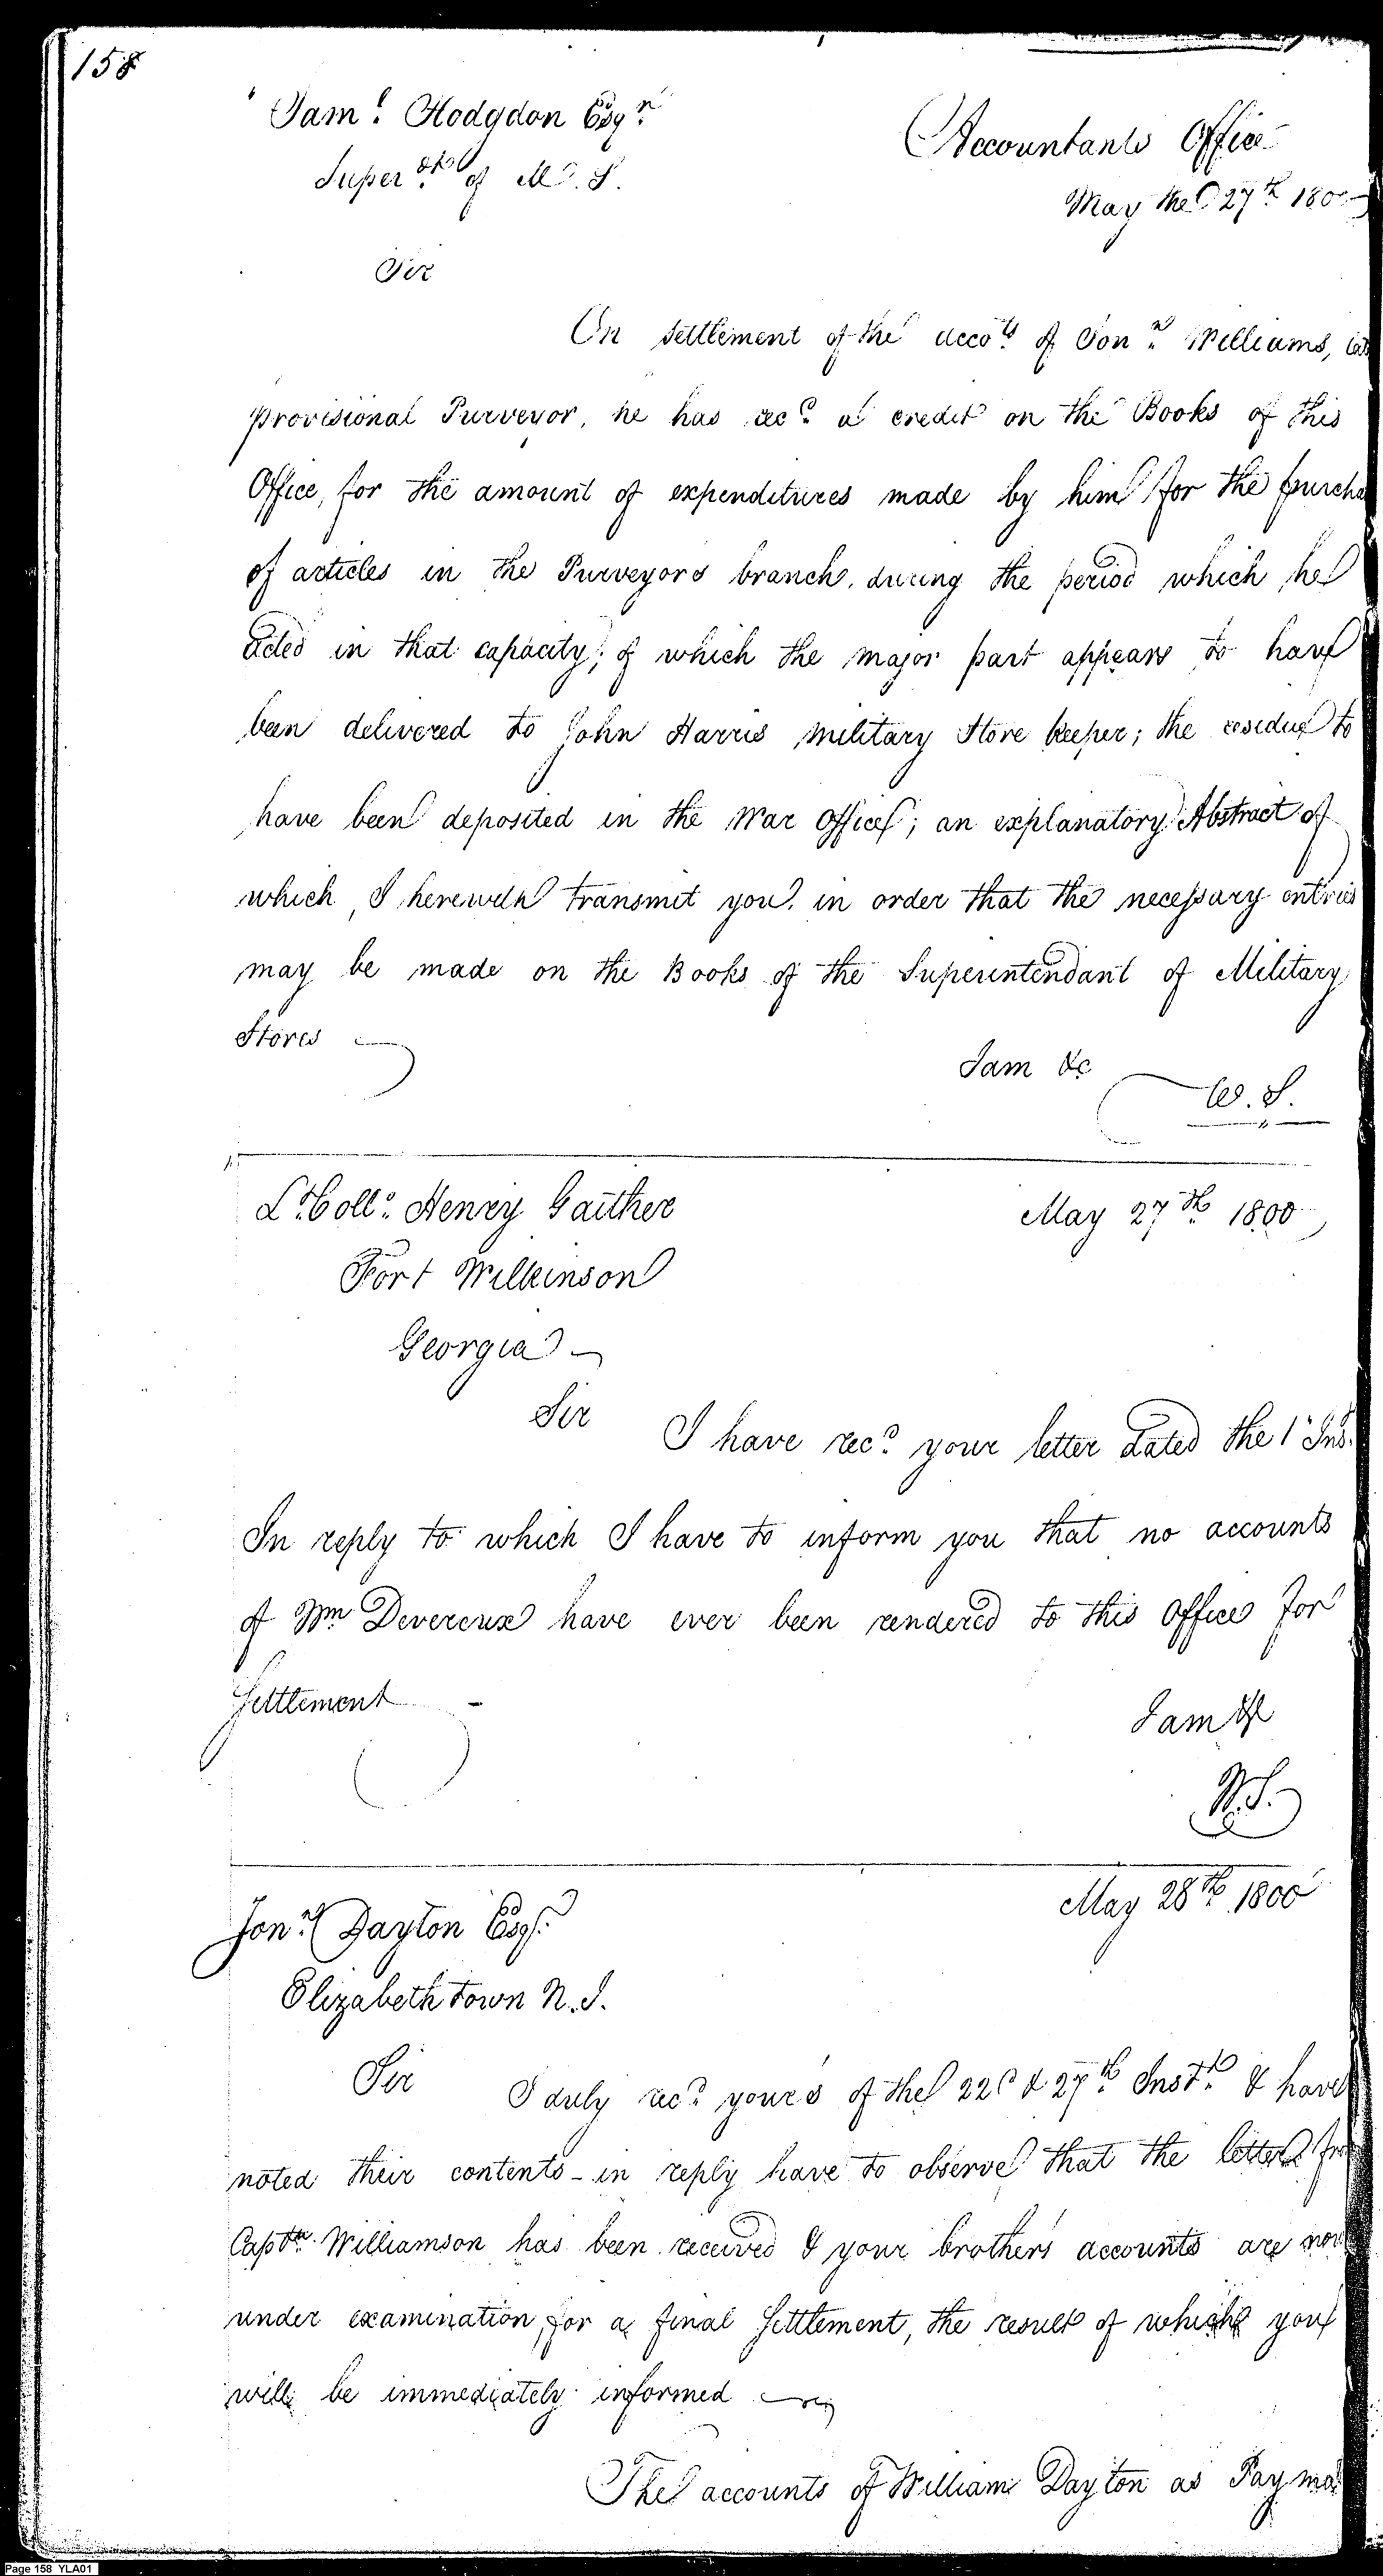 158
Sam.l Hodgdon Esqr.
Superdt. of M. S.
Accountants Office
May the 27th 1800
Sir
On settlement of the accots. of Jonn. Williams, late
provisional Purveyor, he has recd. a credit on the Books of this
Office, for the amount of expenditures made by him for the purcha
of articles in the Purveyors branch, during the period which he
acted in that capacity; of which the major part appears to have
been delivered to John Harris Military Store keeper; the residue to
have been deposited in the War Office; an explanatory Abstract of
which, I herewith transmit you, in order that the necessary entries
may be made on the Books of the Superintendant of Military
Stores
I am &c
W. S.
Lt. Coll. Henry Gaither
May 27th 1800
Fort Wilkinson
Georgia
Sir
I have recd. your letter dated the 1 Ins.
In reply to which I have to inform you that no accounts
of Wm Devereux have ever been rendered to this Office for
Settlement
I am &c
W.S.
May 28th 1800
Jonn. Dayton Esqr.
Elizabeth town N. J.
Sir
I duly recd. yours of the 22d & 27th Inst. & have
noted their contents - in reply have to observe that the letter
Captn. Williamson has been received & your brothers accounts are now
under examination, for a final Settlement, the result of which you
will be immediately informed
The accounts of William Dayton as Payma
Page 158 YLA01